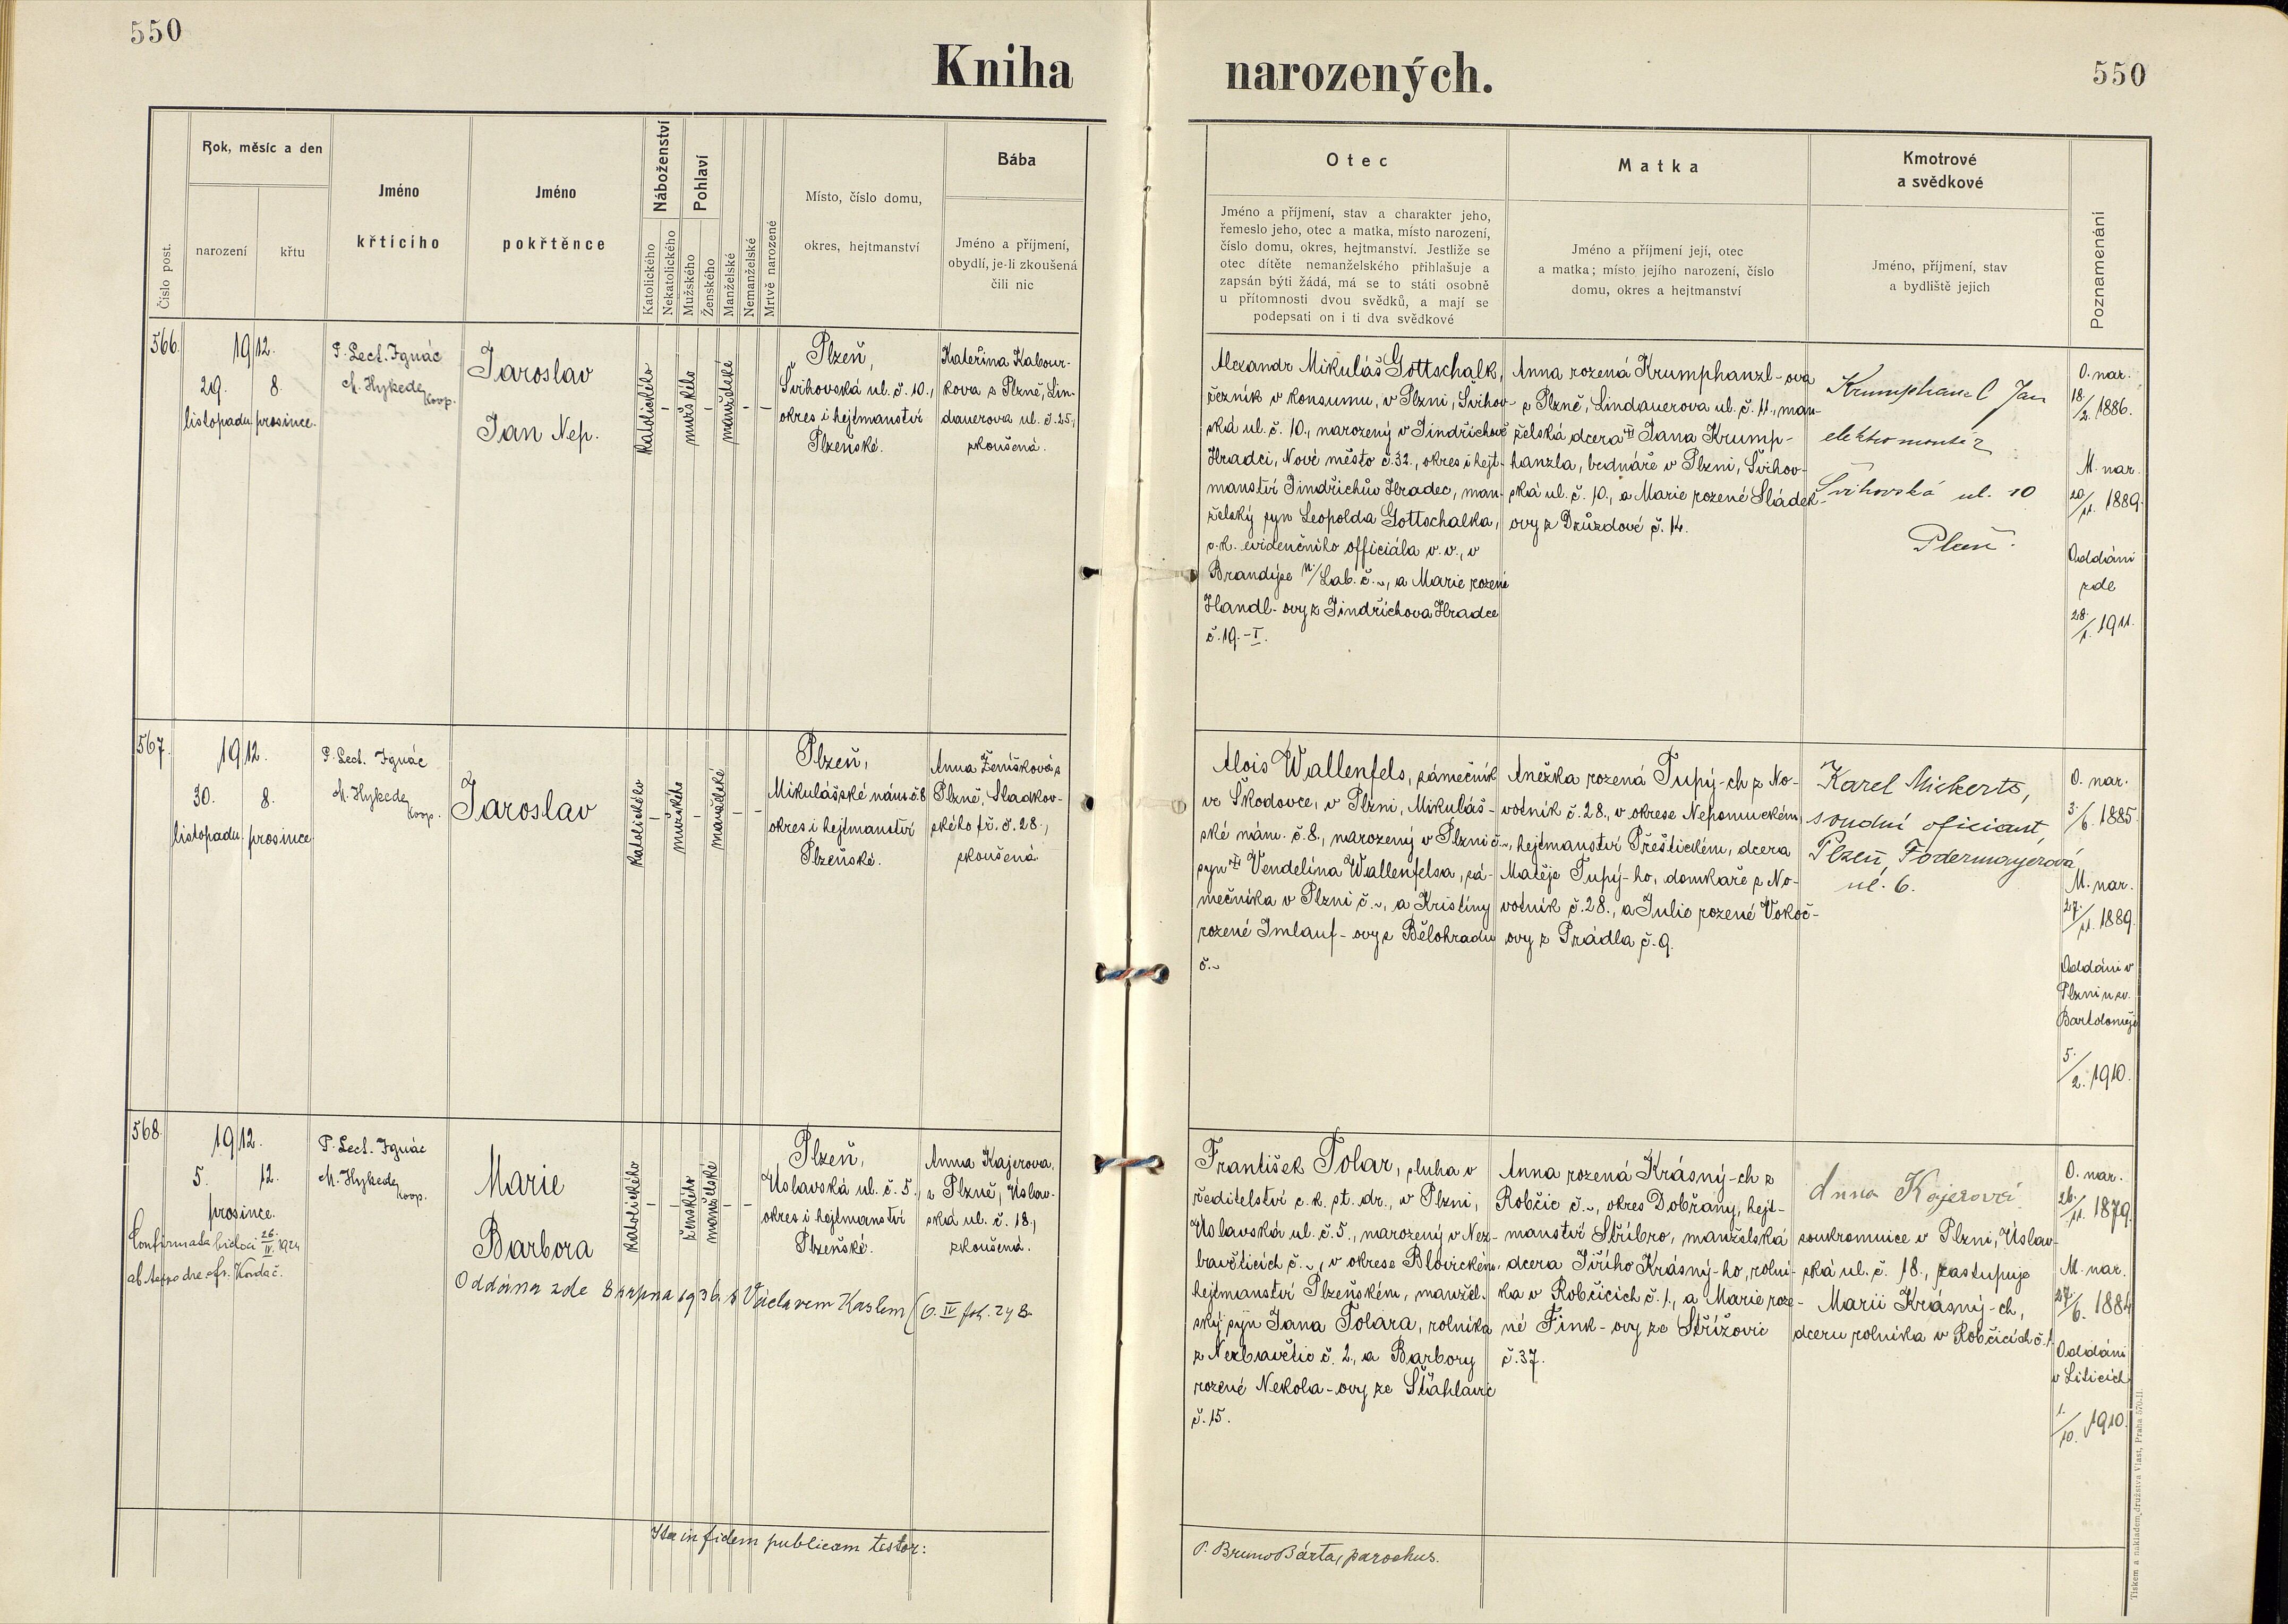 550
Kniha narozených.
550
Číslo post.
Rok, měsíc a den
narození
křtu
Jméno
křticího
Jméno
pokřtěnce
Náboženství
Katolického
Nekatolického
Pohlaví
Mužského
Ženského
Manželské
Nemanželské
Mrtvě narozené
Místo, číslo domu,
okres, hejtmanství
Bába
Jméno a příjmení,
obydlí, je-li zkoušená
čili nic
Otec
Jméno a příjmení, stav a charakter jeho,
řemeslo jeho, otec a matka, místo narození,
číslo domu, okres, hejtmanství. Jestliže se
otec dítěte nemanželského přihlašuje a
zapsán býti žádá, má se to státi osobně
u přítomnosti dvou svědků, a mají se
podepsati on i ti dva svědkové
Matka
Jméno a příjmení její, otec
a matka; místo jejího narození, číslo
domu, okres a hejtmanství
Kmotrové
a svědkové
Jméno, příjmení, stav
a bydliště jejich
Poznamenání
566.
1912.
29. 8.
listopadu prosince.
P. Lect. Ignác
M. Hykede
koop.
Jaroslav
Jan Nep.
katolického
-
mužského
-
manželské
-
-
Plzeň,
Švihovská ul. č. 10.,
okres i hejtmanství
Plzeňské.
Kateřina Kabour-
kova z Plzně, Lin-
dauerova ul. č. 25.,
zkoušená.
Alexandr Mikuláš Gottschalk,
řezník v konsumu, v Plzni, Švihov-
ská ul. č. 10., narozený v Jindřichově
Hradci, Nové město č. 32., okres i hejt-
manství Jindřichův Hradec, man-
želský syn Leopolda Gottschalka,
c. k. evidenčního officiála v. v., v
Brandýse n/Lab. č. ~, a Marie rozené
Handl-ovy z Jindřichova Hradce
č. 19.-I.
Anna rozená Krumphanzl-ova
z Plzně, Lindauerova ul. č. 11., man-
želská dcera Jana Krump-
hanzla, bednáře v Plzni, Švihov-
ská ul. č. 10., a Marie rozené Sládek-
ovy z Drůzdové č. 14.
Krumphanzl Jan
elektromontér
Švihovská ul. 10
Plzeň.
O. nar.
18./2. 1886.
M. nar.
20./11. 1889.
Oddáni
zde
28./1. 1911.
567.
1912.
30. 8.
listopadu prosince
P. Lect. Ignác
M. Hykede
koop.
Jaroslav
katolického
-
mužského
-
manželské
-
-
Plzeň,
Mikulášské nám. č. 8
okres i hejtmanství
Plzeňské.
Anna Ženíšková z
Plzně, Sladkov-
ského tř. č. 28.,
zkoušená.
Alois Wallenfels, zámečník
ve Škodovce, v Plzni, Mikuláš-
ské nám. č. 8., narozený v Plzni č. ~,
syn Vendelína Wallenfelsa, zá-
mečníka v Plzni č. ~, a Kristiny
rozené Imlauf-ovy z Bělohradu
č. ~
Anežka rozená Tupý-ch z No-
votník č. 28., v okrese Nepomuckém,
hejtmanství Přeštickém, dcera
Matěje Tupý-ho, domkaře z No-
votník č. 28., a Julie rozené Vokoč-
ovy z Prádla č. 9.
Karel Mickerts,
soudní oficiant,
Plzeň, Födermayerova
ul. 6.
O. nar.
3./6. 1885.
M. nar.
27./11. 1889.
Oddáni v
Plzni u sv.
Bartoloměje
5./2. 1910.
568.
1912.
5. 12.
prosince.
Confirmata hic loci 26./IV. 1924
P. Lect. Ignác
M. Hykede
koop.
Marie
Barbora
Oddána zde 8 srpna 1936 s Václavem Kaslem (O. IV fol. 248
katolického
-
-
ženského
manželské
-
-
Plzeň,
Úslavská ul. č. 5.,
okres i hejtmanství
Plzeňské.
Anna Kajerova,
z Plzně, Úslav-
ská ul. č. 18.,
zkoušená.
František Tolar, sluha v
ředitelství c. k. st. dr., v Plzni,
Úslavská ul. č. 5., narozený v Nez-
bavěticích č. ~, v okrese Blovickém,
hejtmanství Plzeňském, manžel-
ský syn Jana Tolara, rolníka
z Nezbavětic č. 2., a Barbory
rozené Nekola-ovy ze Šťáhlavic
č. 15.
Anna rozená Krásný-ch z
Robčic č. ~, okres Dobřany, hejt-
manství Stříbro, manželská
dcera Jiřího Krásný-ho, rolní-
ka v Robčicích č. 1., a Marie roze-
né Fink-ovy ze Střížovic
č. 37.
Anna Kajerová
soukromnice v Plzni, Úslav-
ská ul. č. 18., zastupuje
Marii Krásný-ch,
dceru rolníka v Robčicích č. 1.
O. nar.
26./11. 1879.
M. nar.
27./6. 1884
Oddáni
v Liticích
1./10. 1910.
Ita in fidem publicam testor:
P. Bruno Bárta, parochus.
Tiskem a nakladem družstva Vlast, Praha 570-II.